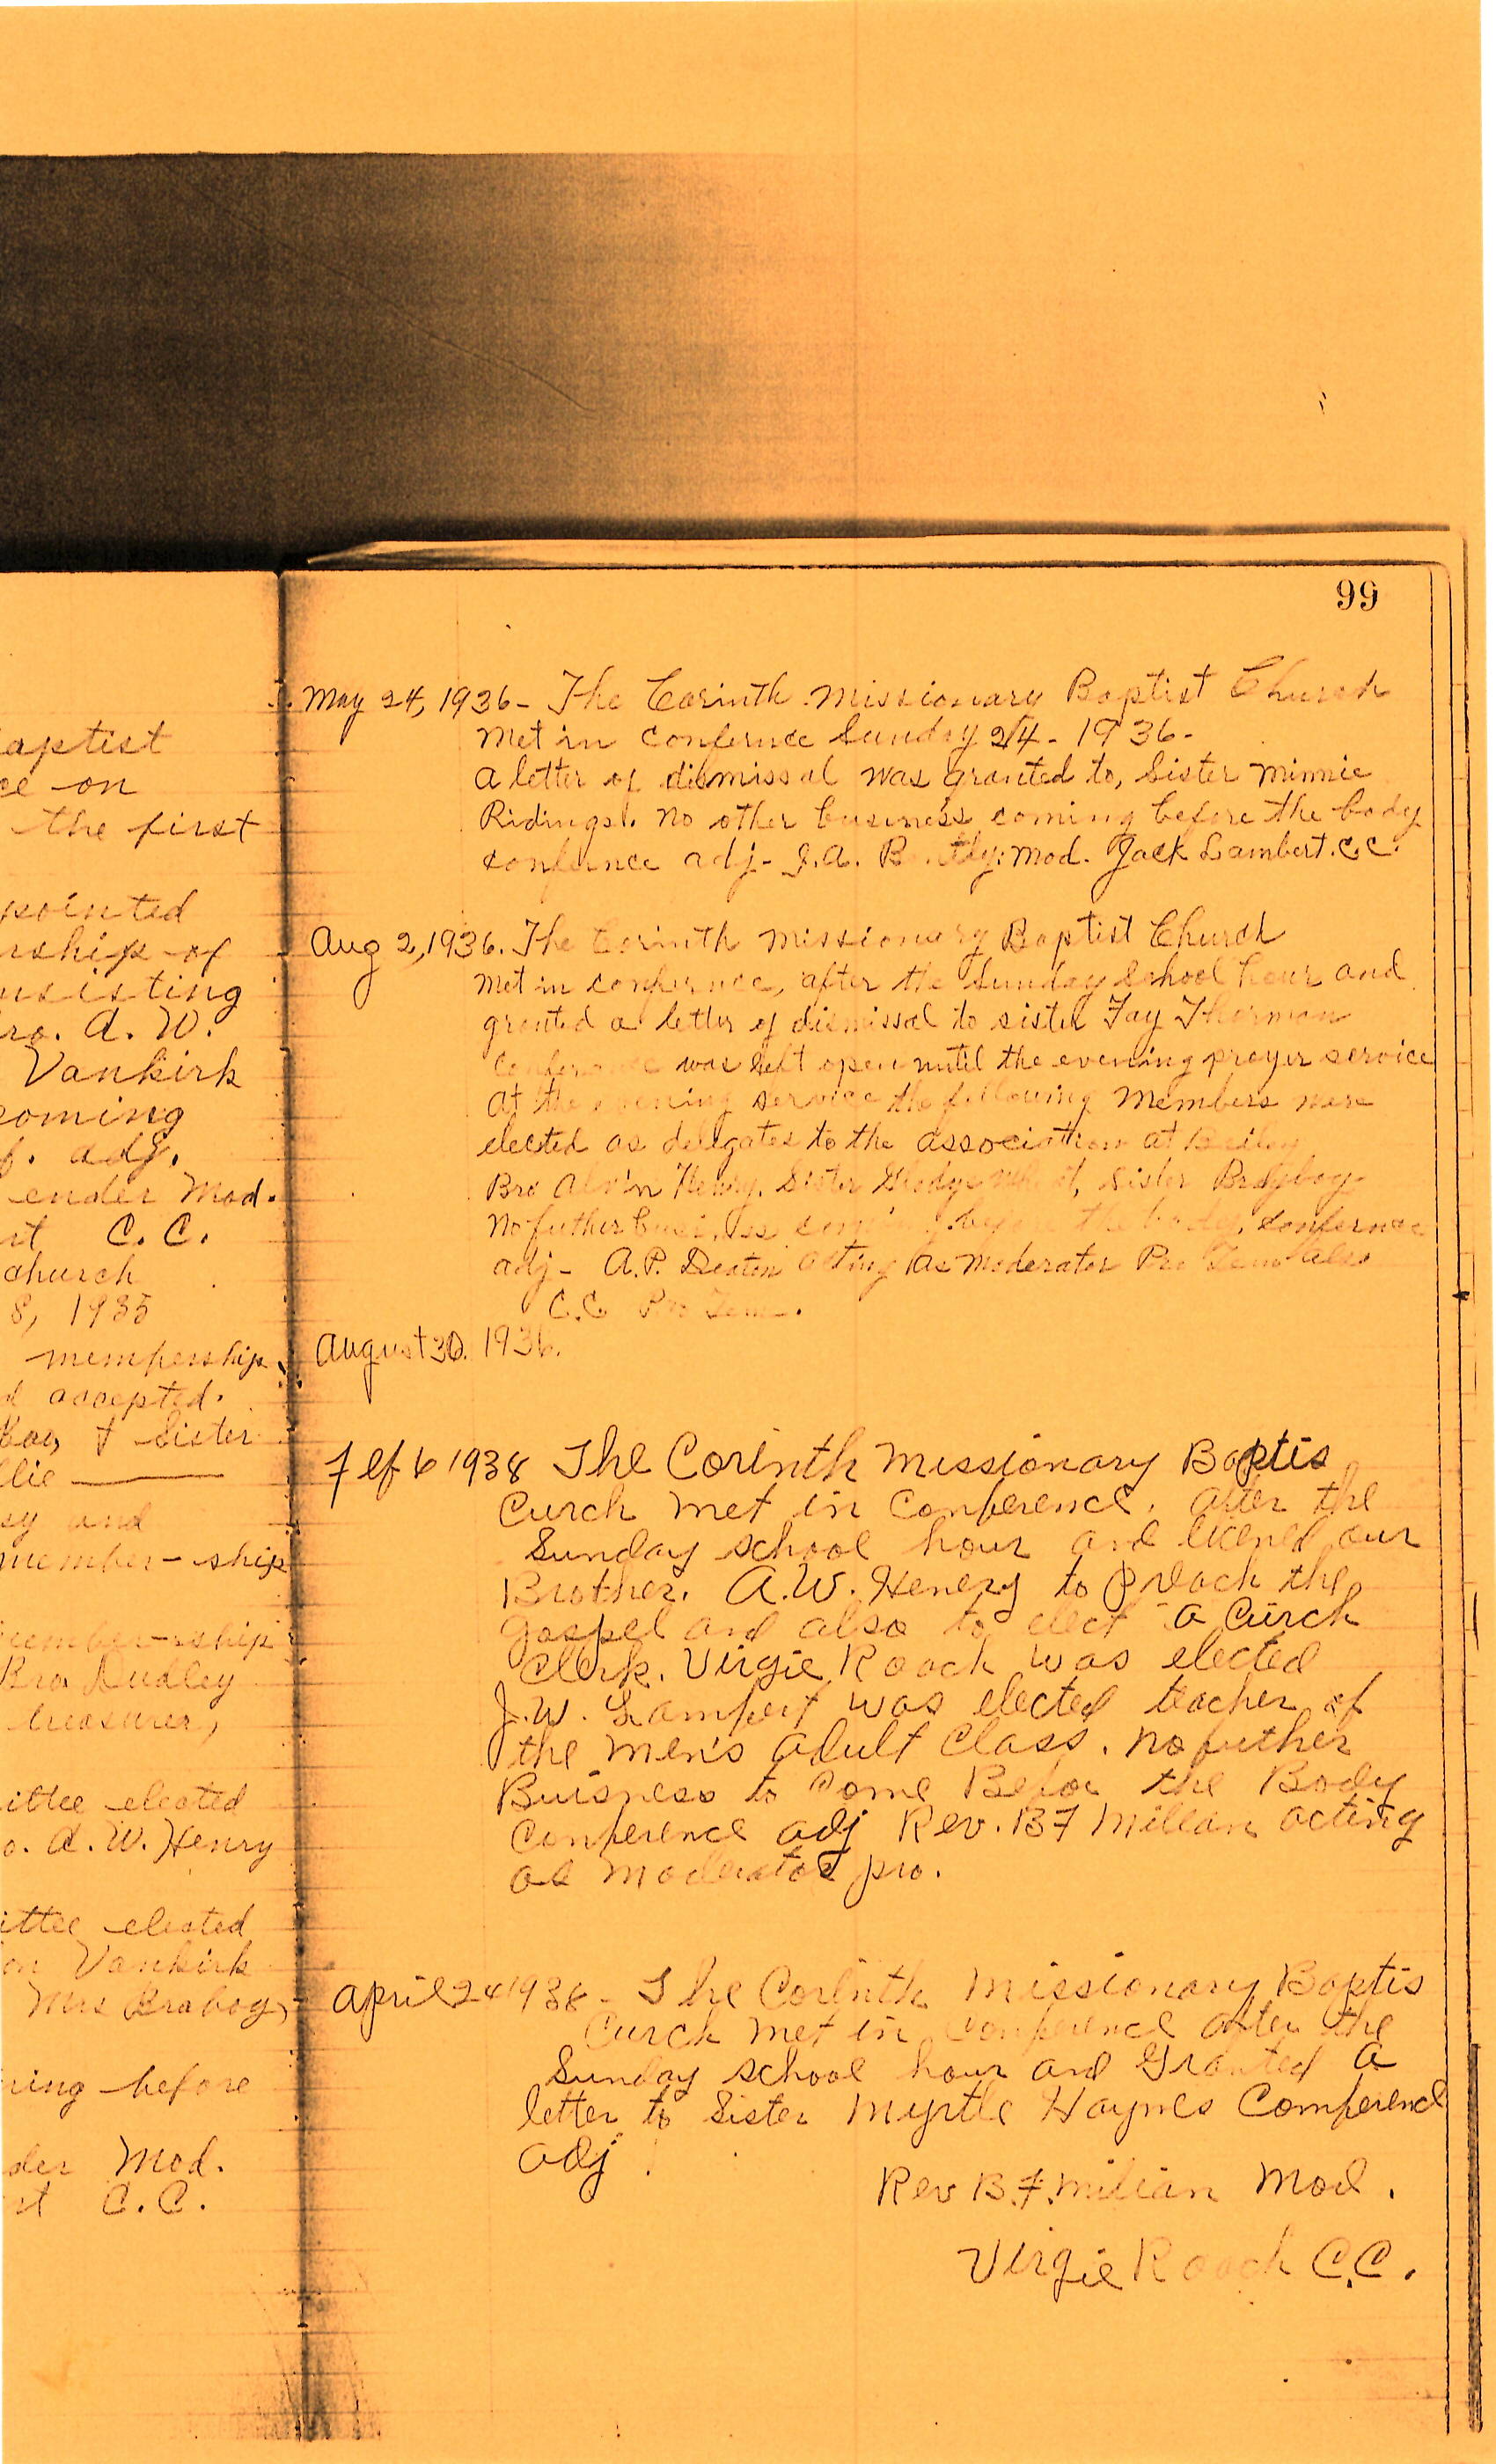 99
aptist
ce on
the first
pointed
rship of
nsisting
ro. A. W.
Vankirk
coming
f. adj.
ender Mod.
rt C. C.
church
8, 1935
mempership
d accepted.
& Sister
llie
sy and
member-ship
ember-rship
Bro Dudley
treasurer,
ittee elected
o. A. W. Henry
ittee elected
on Vankirk
Mrs Brabog,
ring before
der Mod.
rt C. C.
May 24, 1936 - The Corinth Missionary Baptist Church
Met in confernce Sunday 24 - 1936 -
A letter of dismissal was granted to, Sister Minnie
Ridings. No other business coming before the body
confernce adj - J.A. Mod. Jack Lambert. C.C.
Aug 2, 1936. The Corinth Missionary Baptist Church
Met in confernce, after the Sunday School hour and
granted a letter of dismissal to sister Fay Thorman
Conference was left open until the evening prayer service
At the evening service the following Members were
elected as deligates to the association at Bailey
Bro Alvin Henry, Sister Gladys Sister Brabog
No futher business coming before the body, confernce
adj - A.P. Deaton acting as Moderator Pro Tem also
C.C Pro Tem.
August 30. 1936.
Feb 6 1938 The Corinth Missionary Baptis
Curch met in Conference. After the
Sunday school hour and licened our
Brother. A.W. Henery to preach the
gospel and also to elect a Curch
Clerk. Virgie Roach was elected
J.W. Lampert was elected teacher of
the men's adult Class. No futher
Buisness to Come Befor the Body
Conference adj Rev. B F Millan acting
as Moderator pro.
April 24 1938 - The Corinth Missionary Baptis
Curch Met in Conference after the
Sunday school hour and Granted A
letter to Sister Myrtle Haynes Comference
adj.
Rev B.F. Milian Mod.
Virgie Roach C.C.